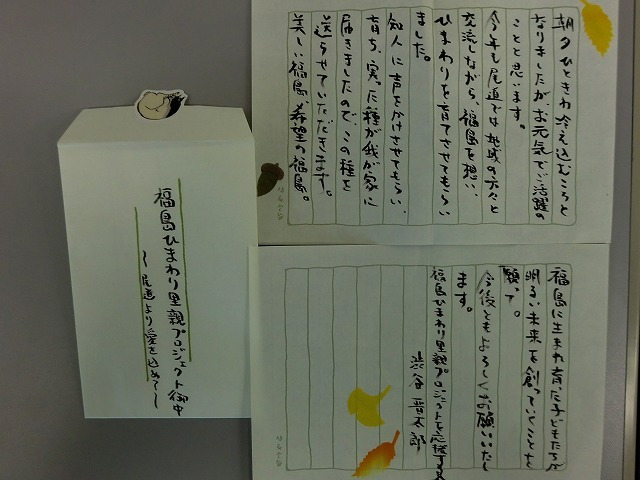 福島ひまわり里親プロジェクト御中
〜尾道より愛を込めて〜
朝夕ひときわ冷え込むころと
なりましたが、お元気でご活躍の
ことと思います。
今年も尾道では地域の方々と
交流しながら、福島を想い、
ひまわりを育てさせてもらい
ました。
知人に声をかけさせてもらい、
育ち、実った種が我が家に
届きましたので、この種を
送らせていただきます。
美しい福島、希望の福島。
福島に生まれ育った子どもたちが
明るい未来を創っていくことを
願って。
今後ともよろしくお願いいたし
ます。
福島ひまわり里親プロジェクトを応援する
渋谷 晋太郎